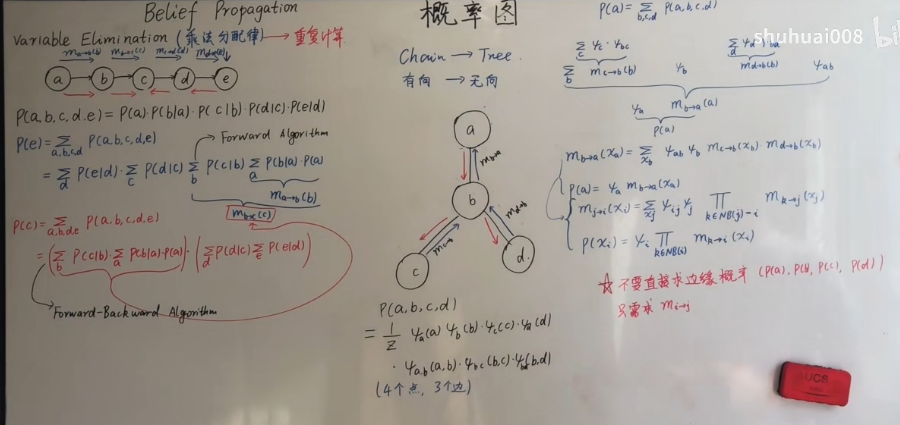 Belief Propagation
概率图
Variable Elimination (乘法分配律) → 重复计算
m_{a→b}(b) m_{b→c}(c) m_{c→d}(d) m_{d→e}(e)
a b c d e
P(a,b,c,d,e) = P(a)·P(b|a)·P(c|b)·P(d|c)·P(e|d)
P(e) = Σ_{a,b,c,d} P(a,b,c,d,e)
Forward Algorithm
= Σ_d P(e|d)·Σ_c P(d|c)·Σ_b P(c|b)·Σ_a P(b|a)·P(a)
m_{a→b}(b)
m_{b→c}(c)
P(c) = Σ_{a,b,d,e} P(a,b,c,d,e)
= (Σ_b P(c|b)·Σ_a P(b|a)·P(a))·(Σ_d P(d|c) Σ_e P(e|d))
Forward-Backward Algorithm
Chain → Tree.
有向 → 无向
a
m_{b→a}
b
m_{c→b}
m_{d→b}
c
d
P(a,b,c,d)
= 1/Z ψ_a(a) ψ_b(b)·ψ_c(c)·ψ_d(d)
·ψ_{a,b}(a,b)·ψ_{bc}(b,c)·ψ_{bd}(b,d)
(4个点, 3个边)
P(a) = Σ_{b,c,d} P(a,b,c,d)
shuhuai008
Σ_c ψ_c·ψ_{bc}
Σ_b m_{c→b}(b) ψ_b m_{d→b}(b) ψ_{ab}
ψ_a m_{b→a}(a)
P(a)
m_{b→a}(x_a) = Σ_{x_b} ψ_{ab} ψ_b m_{c→b}(x_b)·m_{d→b}(x_b)
P(a) = ψ_a m_{b→a}(x_a)
m_{j→i}(x_i) = Σ_{x_j} ψ_{ij} ψ_j ∏_{k∈NB(j)-i} m_{k→j}(x_j)
P(x_i) = ψ_i ∏_{k∈NB(i)} m_{k→i}(x_i)
☆ 不要直接求边缘概率 (P(a), P(b), P(c), P(d))
只需求 m_{i→j}
AUCS